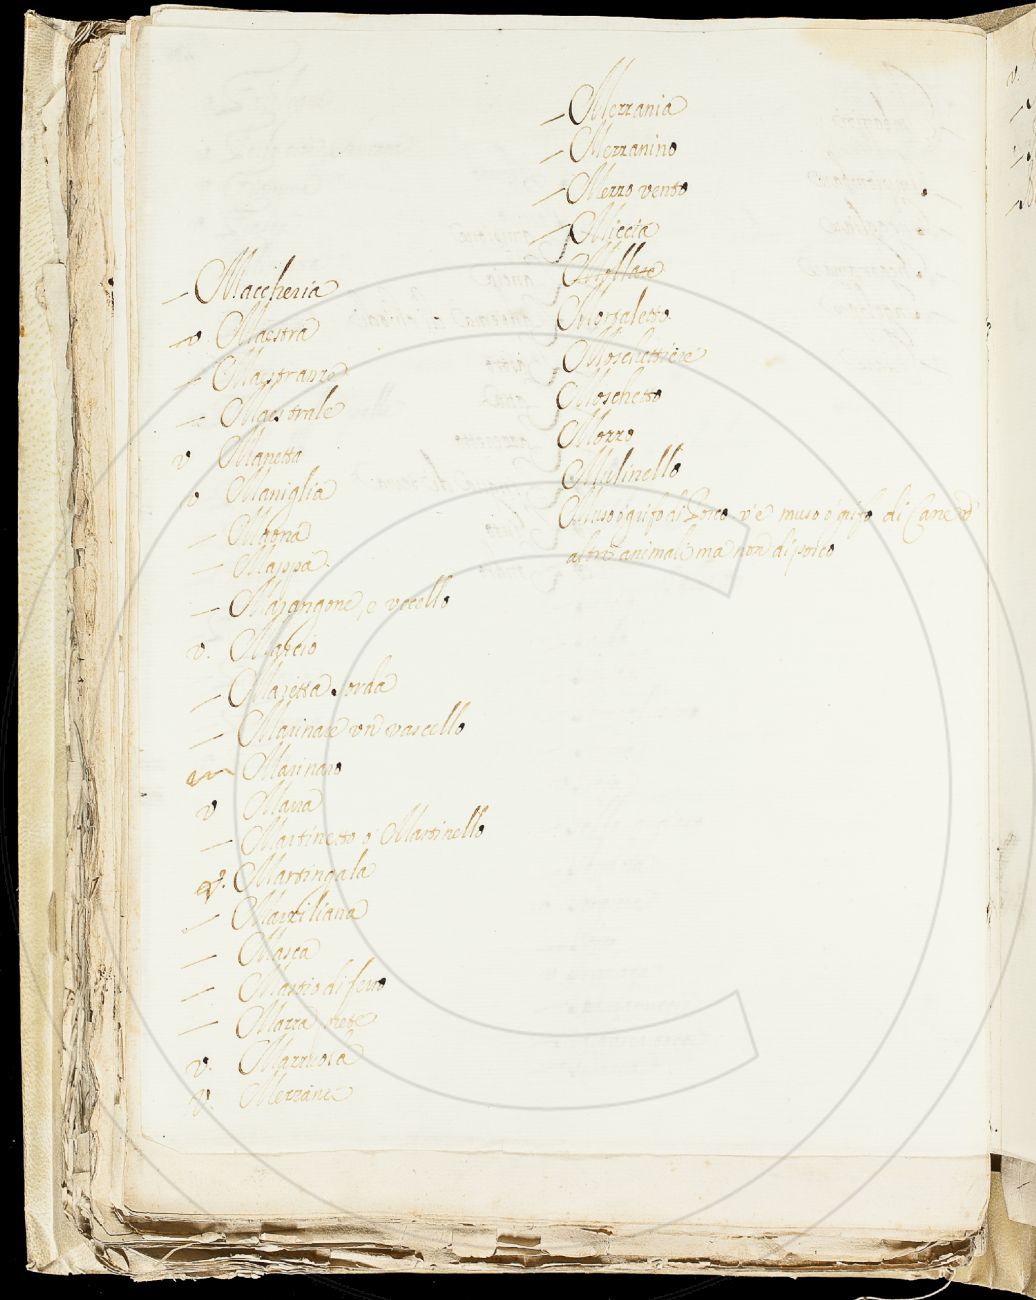 — Maccheria
v Maestra
— Maestranze
— Maestrale
v Manetta
v Maniglia
— Maona
— Mappa.
— Marangone, e vccello
v. Marcio
— Maretta sorda
— Marinare vn vascello
Marinaro
v Marra
— Martinetto o Martinello
v. Martingala
— Marziliana
— Masca
— Mastio di ferro
— Mazza
v. Mazzuola
v. Mezzane
— Mezzania
— Mezzanino
— Mezzo vento
— Miccia
Mollare
Mortaletto
Moschettiere
Moschetto
Mozzo
Mulinello
Muso o grifo di Porco v'è muso o grifo di Cane ed
altri animali ma non di porco